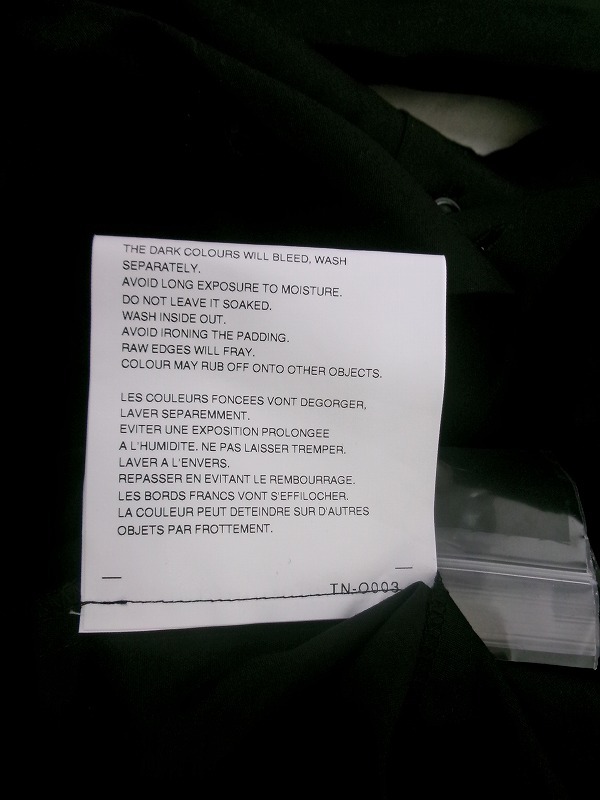 THE DARK COLOURS WILL BLEED, WASH
SEPARATELY.
AVOID LONG EXPOSURE TO MOISTURE.
DO NOT LEAVE IT SOAKED.
WASH INSIDE OUT.
AVOID IRONING THE PADDING.
RAW EDGES WILL FRAY.
COLOUR MAY RUB OFF ONTO OTHER OBJECTS.
LES COULEURS FONCEES VONT DEGORGER,
LAVER SEPAREMMENT.
EVITER UNE EXPOSITION PROLONGEE
A L'HUMIDITE. NE PAS LAISSER TREMPER.
LAVER A L'ENVERS.
REPASSER EN EVITANT LE REMBOURRAGE.
LES BORDS FRANCS VONT S'EFFILOCHER.
LA COULEUR PEUT DETEINDRE SUR D'AUTRES
OBJETS PAR FROTTEMENT.
TN-O003